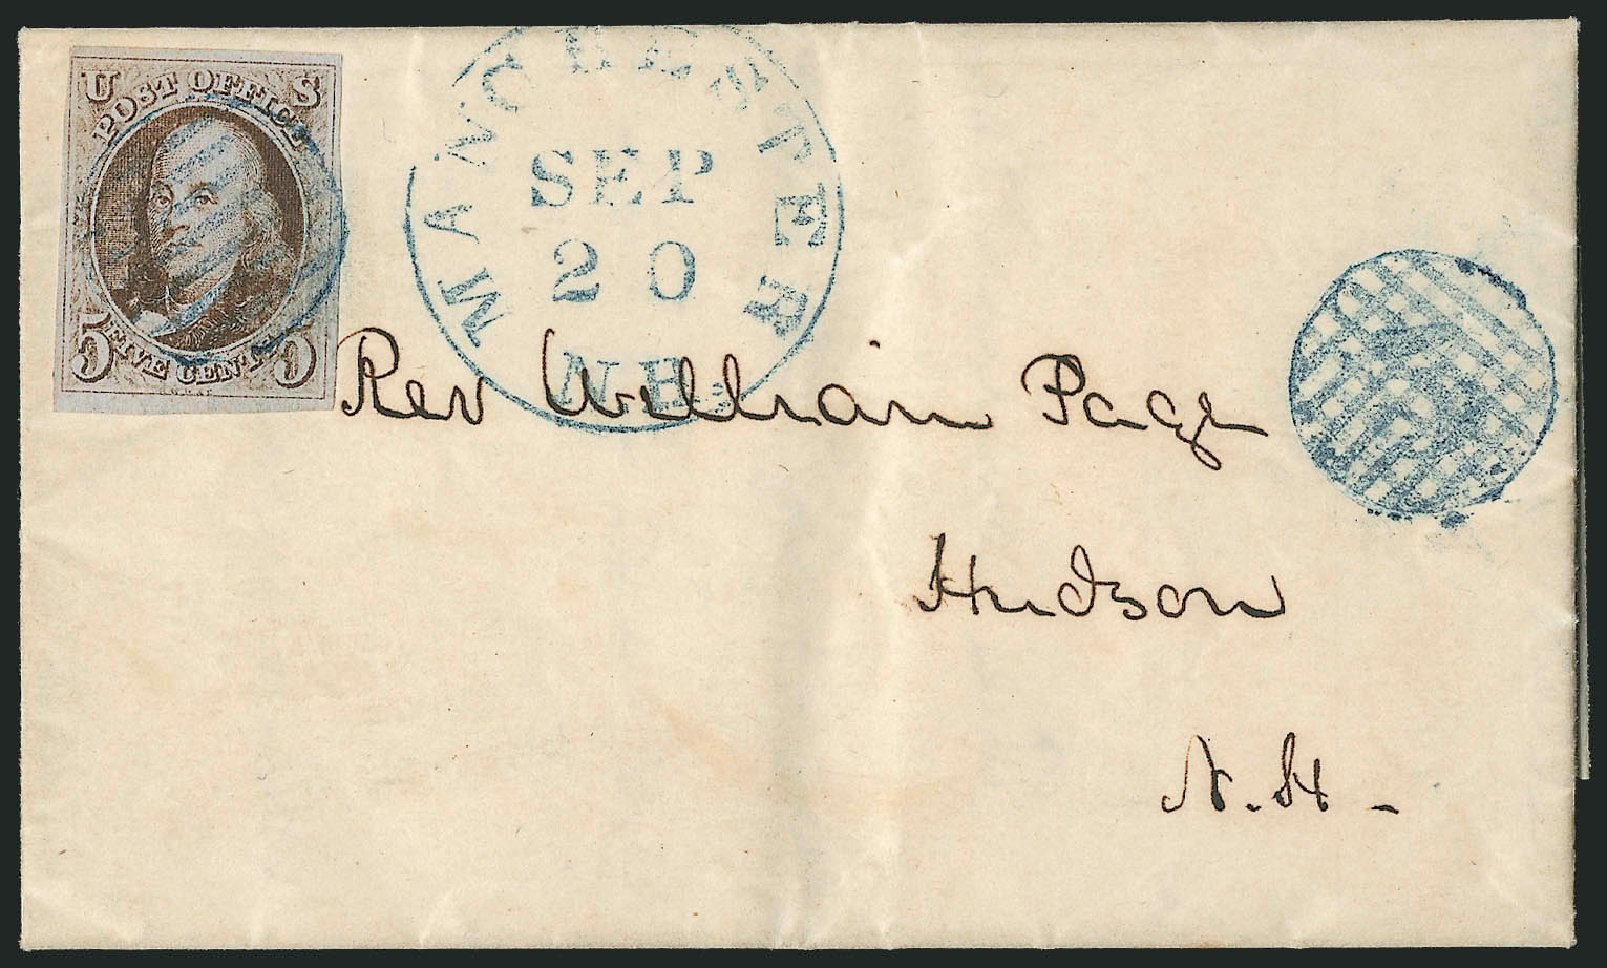 U S
POST OFFICE
5 FIVE CENTS 5
MANCHESTER
SEP
20
N.H.
Rev William Page
Hudson
N.H.